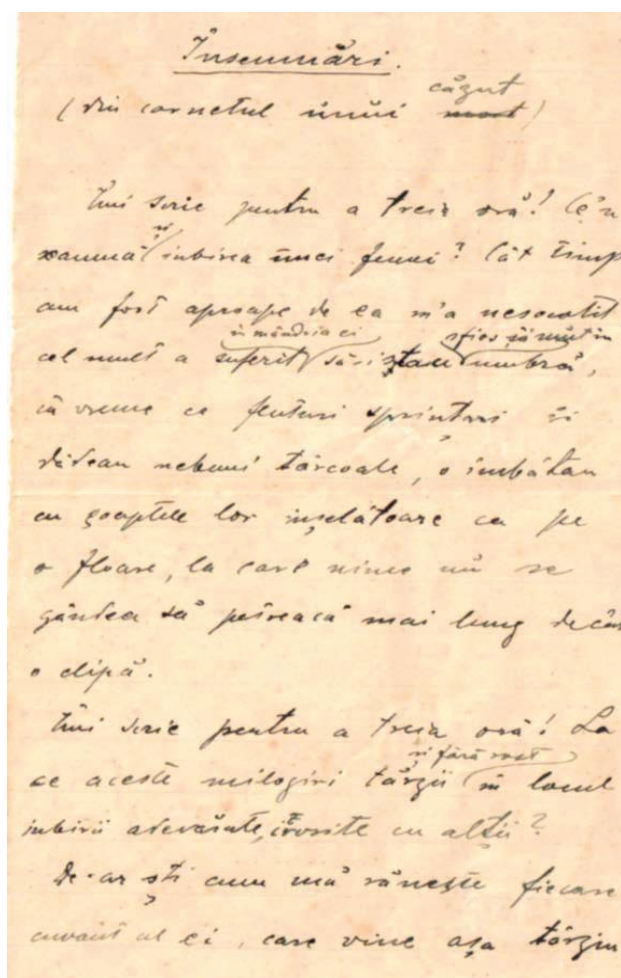 Însemnări.
(din carnetul unui mort căzut)
Îmi scrie pentru a treia oră! Ce'n
xamnă și iubirea unei femei? Cât timp
am fost aproape de ea m'a nesocotit
cel mult a suferit în mândria ei să-i stau sfios și mut în umbră,
în vreme ce fluturi sprintari îi
dădeau nebuni târcoale, o îmbătau
cu șoaptele lor înșelătoare ca pe
o floare, la care nime nu se
gândea să petreacă mai lung decât
o clipă.
Îmi scrie pentru a treia oră! La
ce aceste milogiri târzii și fără rost în locul
iubirii adevărate, irosite cu alții?
De-ar ști cum mă rănește fiecare
cuvânt al ei, care vine așa târziu